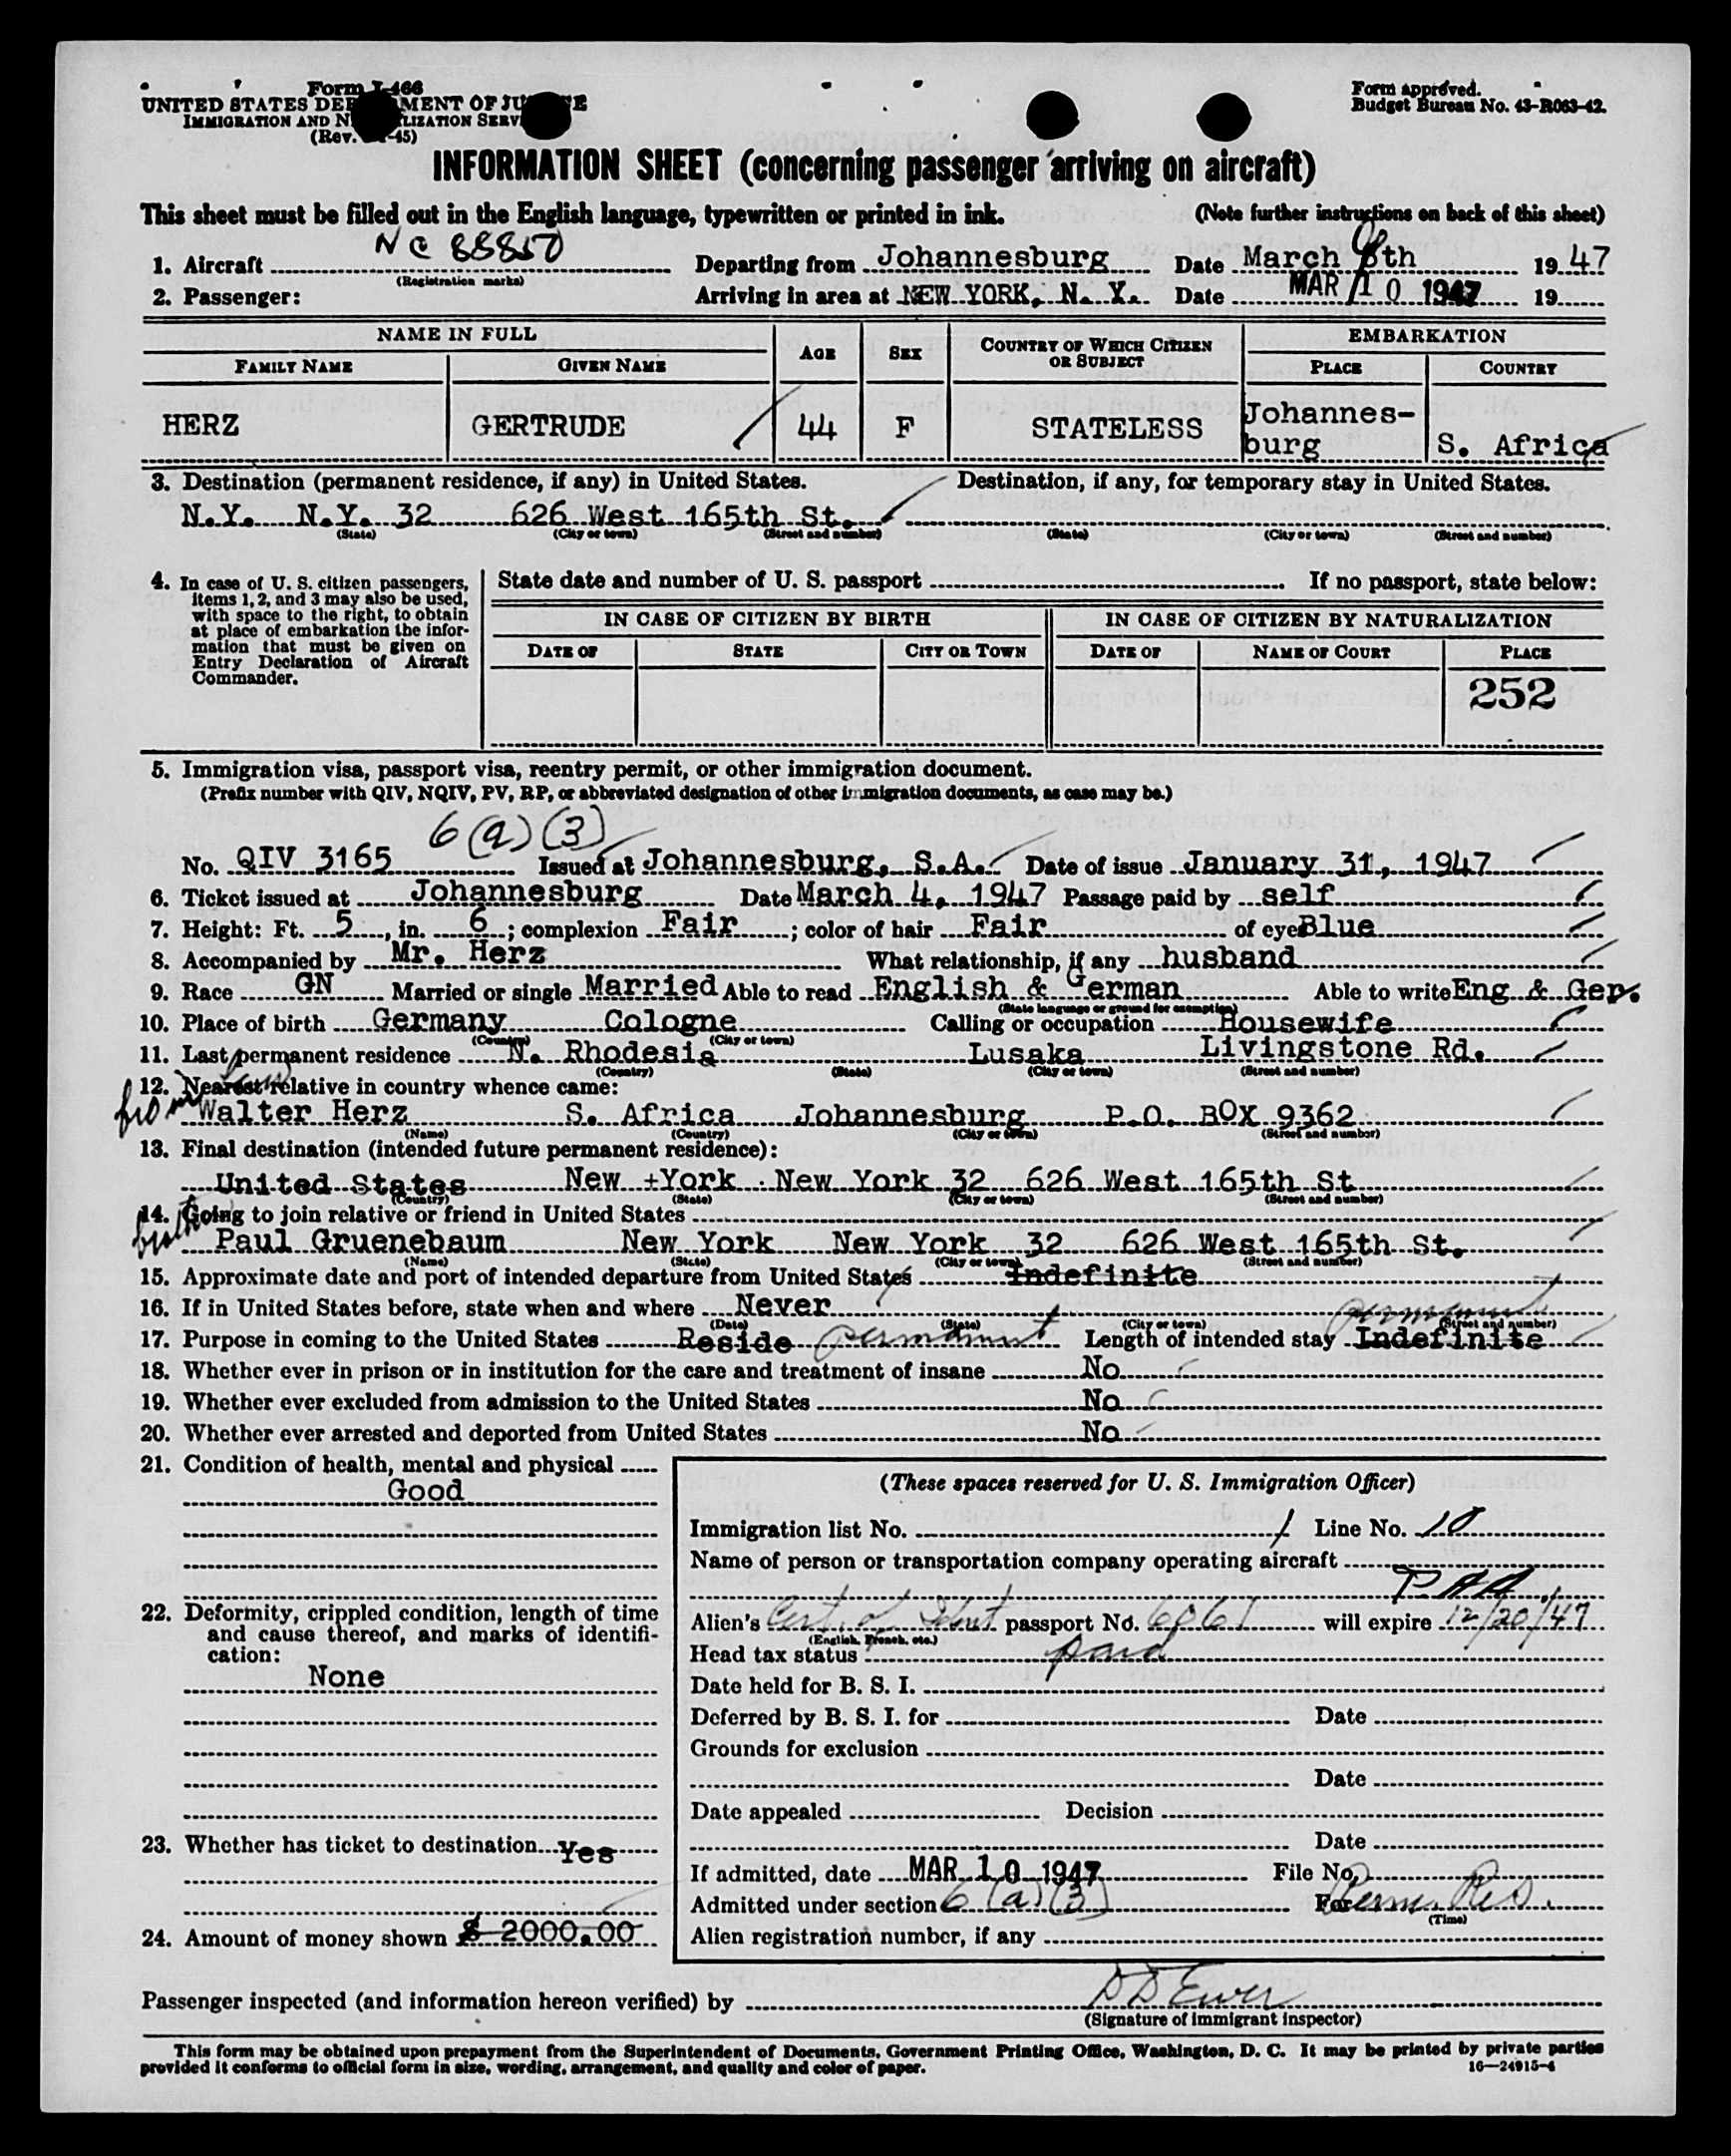 Form I-466
UNITED STATES DEPARTMENT OF JUSTICE
IMMIGRATION AND NATURALIZATION SERVICE
(Rev. -45)
Form approved.
Budget Bureau No. 43-R063-42.
INFORMATION SHEET (concerning passenger arriving on aircraft)
This sheet must be filled out in the English language, typewritten or printed in ink. (Note further instructions on back of this sheet)
1. Aircraft NC 88850 Departing from Johannesburg Date March 8th 1947
(Registration marks)
2. Passenger: Arriving in area at NEW YORK, N. Y. Date MAR 10 1947 19
NAME IN FULL AGE SEX COUNTRY OF WHICH CITIZEN OR SUBJECT EMBARKATION
FAMILY NAME GIVEN NAME PLACE COUNTRY
HERZ GERTRUDE 44 F STATELESS Johannes-burg S. Africa
3. Destination (permanent residence, if any) in United States. Destination, if any, for temporary stay in United States.
N.Y. N.Y. 32 626 West 165th St.
(State) (City or town) (Street and number) (State) (City or town) (Street and number)
4. In case of U. S. citizen passengers,
items 1, 2, and 3 may also be used,
with space to the right, to obtain
at place of embarkation the infor-
mation that must be given on
Entry Declaration of Aircraft
Commander.
State date and number of U. S. passport If no passport, state below:
IN CASE OF CITIZEN BY BIRTH IN CASE OF CITIZEN BY NATURALIZATION
DATE OF STATE CITY OR TOWN DATE OF NAME OF COURT PLACE
252
5. Immigration visa, passport visa, reentry permit, or other immigration document.
(Prefix number with QIV, NQIV, PV, RP, or abbreviated designation of other immigration documents, as case may be.)
6(a)(3)
No. QIV 3165 Issued at Johannesburg, S.A. Date of issue January 31, 1947
6. Ticket issued at Johannesburg Date March 4, 1947 Passage paid by self
7. Height: Ft. 5, in. 6; complexion Fair; color of hair Fair of eyes Blue
8. Accompanied by Mr. Herz What relationship, if any husband
9. Race GN Married or single Married Able to read English & German Able to write Eng & Ger.
(State language or ground for exemption)
10. Place of birth Germany Cologne Calling or occupation Housewife
(Country) (City or town)
11. Last permanent residence N. Rhodesia Lusaka Livingstone Rd.
(Country) (State) (City or town) (Street and number)
12. Nearest relative in country whence came:
Walter Herz S. Africa Johannesburg P.O. BOX 9362
(Name) (Country) (City or town) (Street and number)
13. Final destination (intended future permanent residence):
United States New +York New York 32 626 West 165th St
(Country) (State) (City or town) (Street and number)
14. Going to join relative or friend in United States
Paul Gruenebaum New York New York 32 626 West 165th St.
(Name) (State) (City or town) (Street and number)
15. Approximate date and port of intended departure from United States Indefinite
16. If in United States before, state when and where Never
(Date) (State) (City or town) (Street and number)
permanent
17. Purpose in coming to the United States Reside permanent Length of intended stay Indefinite
18. Whether ever in prison or in institution for the care and treatment of insane No
19. Whether ever excluded from admission to the United States No
20. Whether ever arrested and deported from United States No
21. Condition of health, mental and physical
Good
22. Deformity, crippled condition, length of time
and cause thereof, and marks of identifi-
cation:
None
23. Whether has ticket to destination Yes
24. Amount of money shown $ 2000.00
(These spaces reserved for U. S. Immigration Officer)
Immigration list No. 1 Line No. 10
Name of person or transportation company operating aircraft
PAA
Alien's Cert. of Ident passport No. 6061 will expire 12/20/47
(English, French, etc.)
Head tax status paid
Date held for B. S. I.
Deferred by B. S. I. for Date
Grounds for exclusion
Date
Date appealed Decision
Date
If admitted, date MAR 10 1947 File No.
Admitted under section 6(a)(3) For Perm. Res.
(Time)
Alien registration number, if any
Passenger inspected (and information hereon verified) by D D Ewer
(Signature of immigrant inspector)
This form may be obtained upon prepayment from the Superintendent of Documents, Government Printing Office, Washington, D. C. It may be printed by private parties
provided it conforms to official form in size, wording, arrangement, and quality and color of paper. 16—24915-4